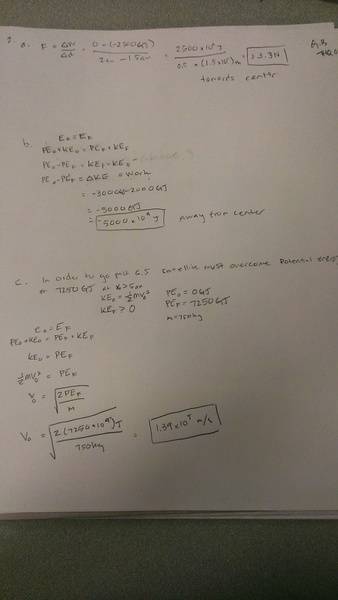 a. F = ΔPE / Δd = 0 - (-2500 GJ) / 2AU - 1.5AU = 2500 × 10⁹ J / 0.5 × (1.5 × 10¹¹) m = 33.3N
towards center
b. E₀ = E_F
PE₀ + KE₀ = PE_F + KE_F
PE₀ - PE_F = KE_F - KE₀
PE₀ - PE_F = ΔKE = Work
= -3000GJ - 2000GJ
= -5000GJ
= -5000 × 10⁹ J away from center
c. In order to go past 6.5 satellite must overcome Potential energy
or 7250 GJ at x > 5AU PE₀ = 0GJ
KE₀ = ½mv₀² PE_F = 7250GJ
KE_F > 0 m = 750kg
E₀ = E_F
PE₀ + KE₀ = PE_F + KE_F
KE₀ = PE_F
½mv₀² = PE_F
V₀ = √(2PE_F / m)
V₀ = √(2(7250 × 10⁹)J / 750kg) = 1.39 × 10⁵ m/s